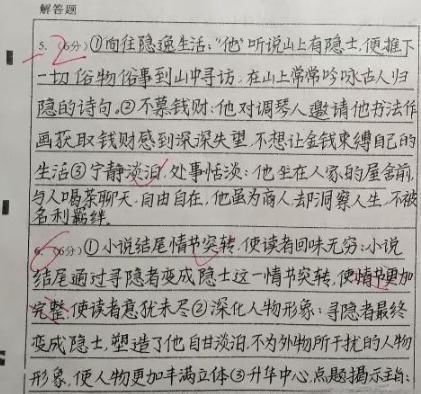 解答题
5. (6分) ①向往隐逸生活:“他”听说山上有隐士,便推下
-2
一切俗物俗事到山中寻访,在山上常常吟咏古人归
隐的诗句。②不慕钱财:他对调琴人邀请他书法作
画获取钱财感到深深失望,不想让金钱束缚自己的
生活③宁静淡泊,处事恬淡:他坐在人家的屋舍前,
与人喝茶聊天,自由自在,他虽为商人却洞察人生,不被
名利羁绊.
6. (6分) ①小说结尾情节突转,使读者回味无穷:小说
结尾通过寻隐者变成隐士这一情节突转,使情节更加
完整,使读者意犹未尽②深化人物形象:寻隐者最终
变成隐士,塑造了他自甘淡泊,不为外物所干扰的人物
形象,使人物更加丰满立体③升华中心,点题揭示主旨: